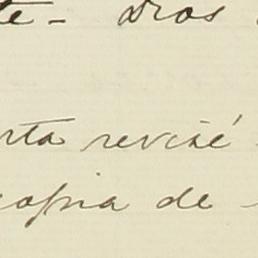 te- Dios
rta revisé
copia de